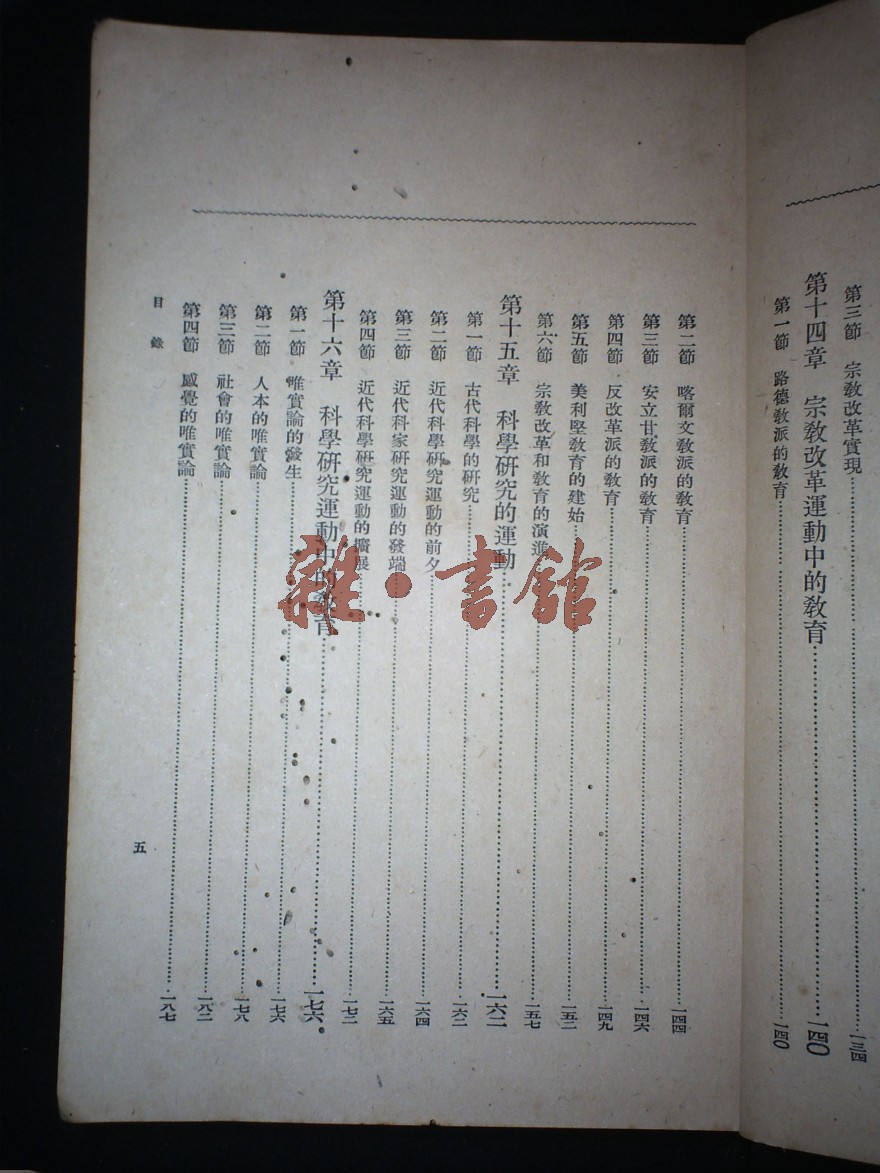 第三節　宗敎改革實現……一三四
第十四章　宗敎改革運動中的敎育……一四〇
第一節　路德敎派的敎育……一四〇
第二節　喀爾文敎派的敎育……一四四
第三節　安立甘敎派的敎育……一四六
第四節　反改革派的敎育……一四九
第五節　美利堅敎育的建始……一五二
第六節　宗敎改革和敎育的演進……一五七
第十五章　科學研究的運動……一六二
第一節　古代科學的研究……一六二
第二節　近代科學研究運動的前夕……一六四
第三節　近代科家研究運動的發端……一六五
第四節　近代科學研究運動的擴展……一七二
第十六章　科學研究運動中的敎育……一七六
第一節　唯實論的發生……一七六
第二節　人本的唯實論……一七八
第三節　社會的唯實論……一八二
第四節　感覺的唯實論……一八七
目錄
五
雜·書館